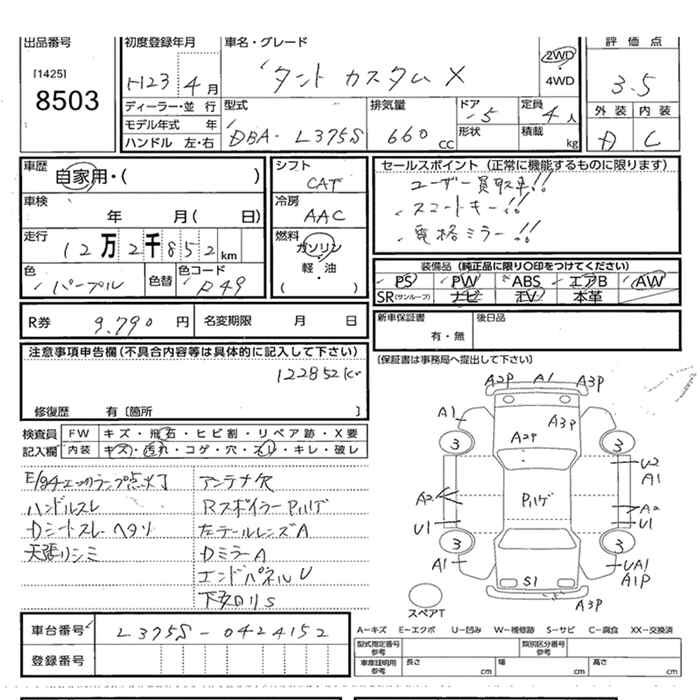 出品番号 初度登録年月 車名・グレード 評価点
[1425]
8503
H23年4月 タント カスタム X 2WD・4WD 3.5
ディーラー・並行 型式 排気量 ドア 定員 外装 内装
モデル年式 年 DBA-L375S 660cc 5 4人 C
ハンドル 左・右 形状 積載 kg
車歴 シフト セールスポイント(正常に機能するものに限ります)
自家用・( ) CAT ユーザー買取車!!
車検 冷房 スマートキー!!
年 月( 日) AAC 電格ミラー!!
走行 燃料
12万2千852km ガソリン・軽・油 ( )
装備品(純正品に限り○印をつけてください)
色 色替 色コード PS PW ABS エアB AW
パープル R49 SR(サンルーフ) ナビ TV 本革
R券 9.790円 名変期限 月 日 新車保証書 後日品
有・無
注意事項申告欄(不具合内容等は具体的に記入して下さい) [保証書は事務局へ提出して下さい]
122852km
修復歴 有[箇所 ]
検査員 FW キズ・飛石・ヒビ割・リペア跡・X要
記入欄 内装 キズ・汚れ・コゲ・穴・スレ・キレ・破レ
A2P A1 A3P
A1 A3P
A2P
3 3
U2
A1
A2 Pハゲ A2
U1 U1
3 3
A1 UA1
A1P
S1
A3P
スペアT
E/gチェックランプ点灯 アンテナ欠
ハンドルスレ RスポイラーPハゲ
Dシートスレ ヘタリ 左テールレンズA
天張リシミ DミラーA
エンドパネルU
下回りS
A−キズ E−エクボ U−凹み W−補修跡 S−サビ C−腐食 XX−交換済
車台番号 L375S-0424152
登録番号
型式指定番号参考 類別区分番号参考
車庫証明用参考 長さ cm 幅 cm 高さ cm